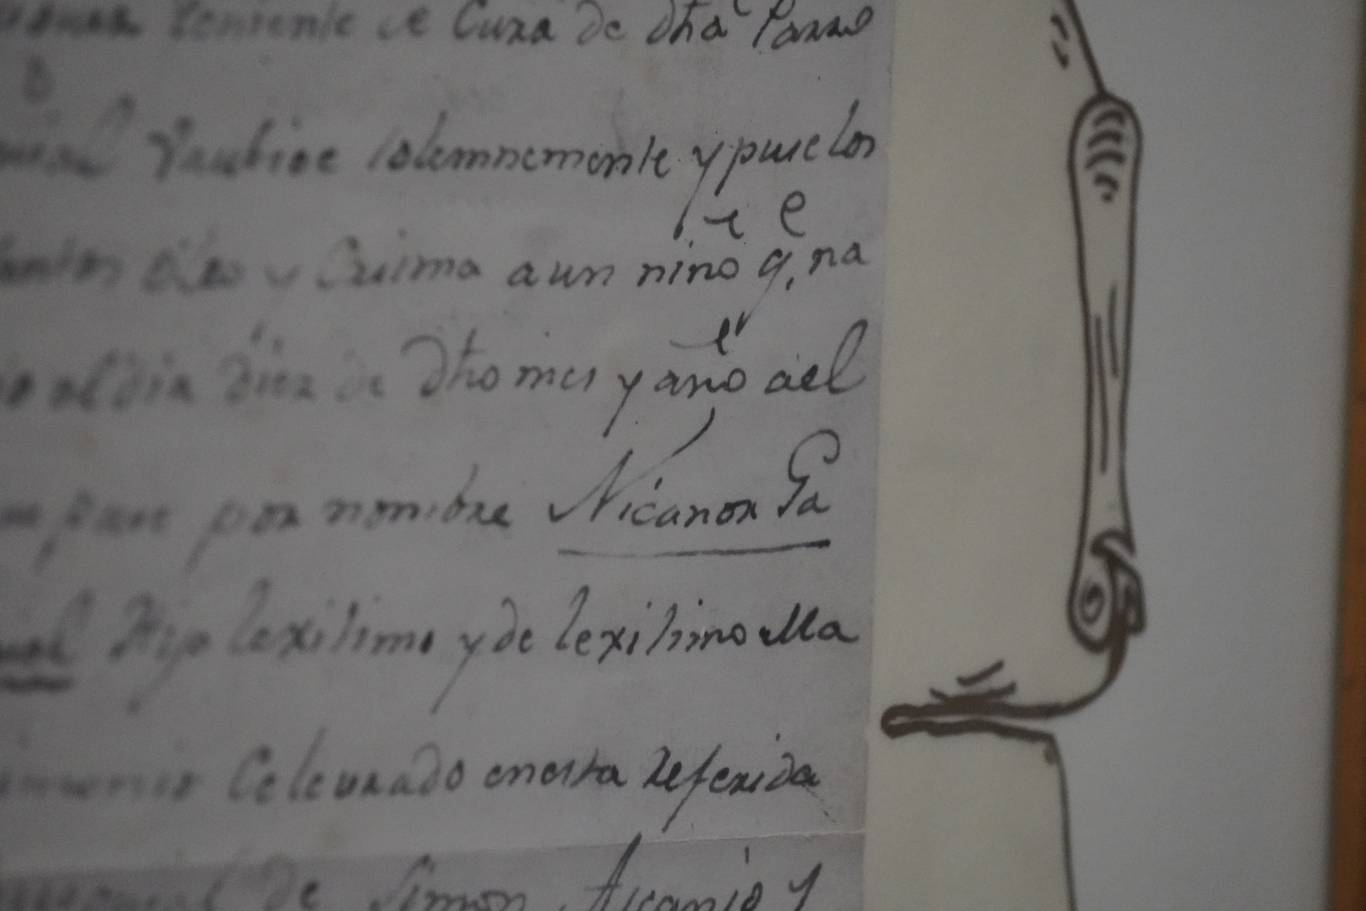 Teniente de Cura de dha Parro
Bautice solemnemente y puse los
oleo y Crisma a un niño q.e na
al dia diez de dho mes y año del
por nombre Nicanor Pa
Hijo lexitimo y de lexitimo Ma
Celeurado en esta Referida
de Simon Ascanio y